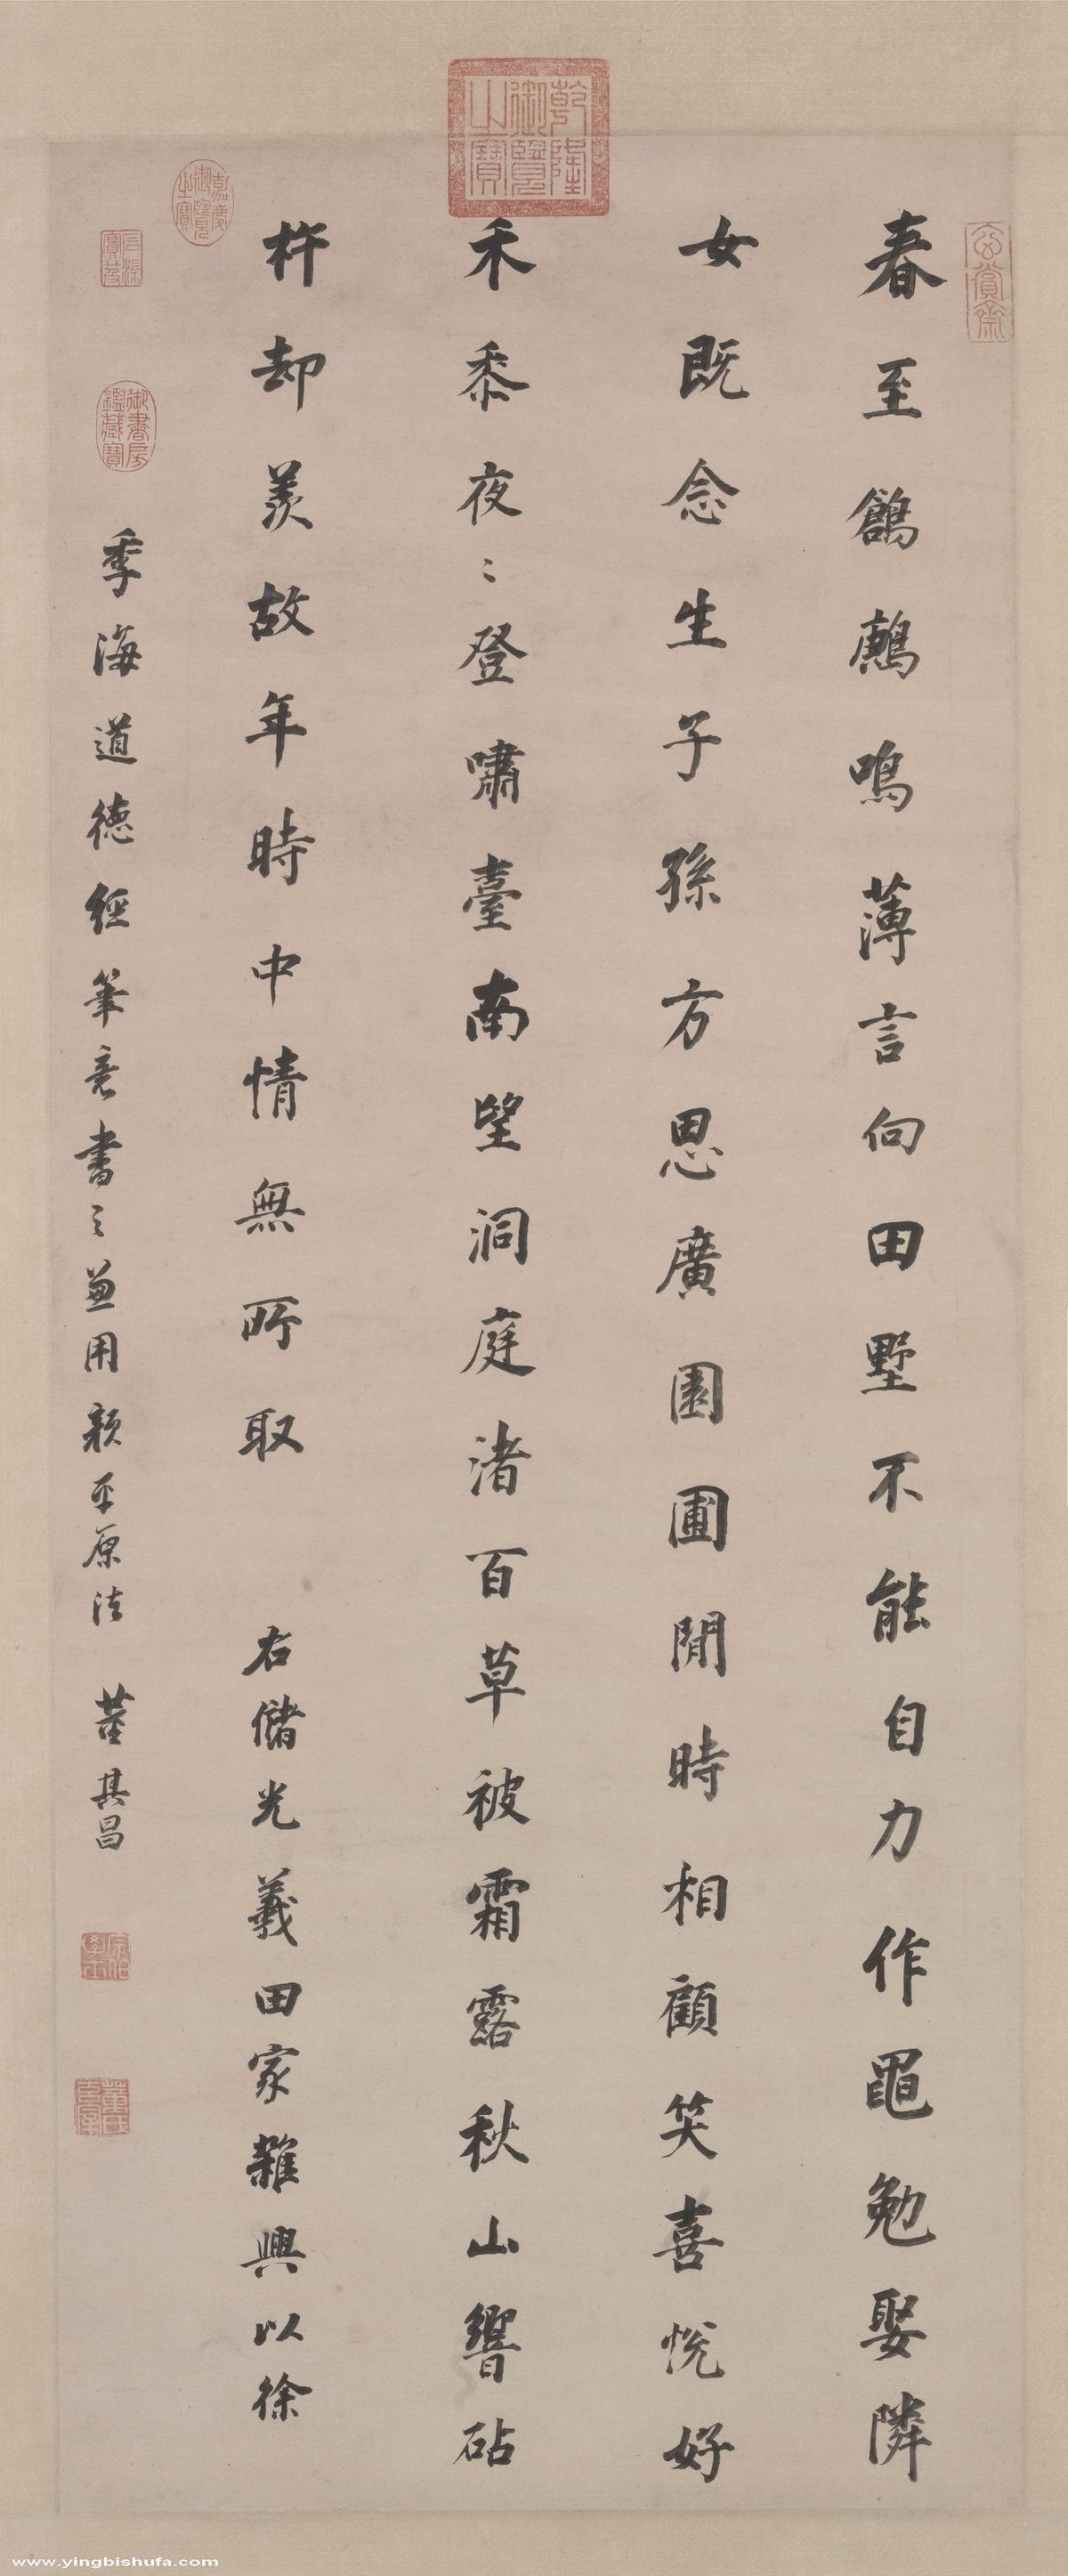 春至鶬鶊鳴薄言向田墅不能自力作黽勉娶隣
女既念生子孫方思廣園圃閒時相顧笑喜悅好
禾黍夜〻登嘯臺南望洞庭渚百草被霜露秋山響砧
杵却羨故年時中情無所取 右儲光羲田家雜興以徐
季海道德經筆意書之兼用顏平原法 董其昌
乾隆御覽之寶
嘉慶御覽之寶
石渠寶笈
御書房鑑藏寶
玄賞齋
宗伯學士
www.yingbishufa.com